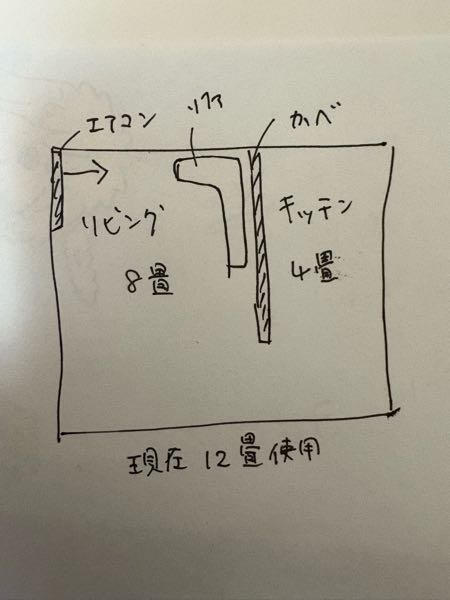 エアコン
ソファ
かべ
リビング
8畳
キッチン
4畳
現在 12畳使用